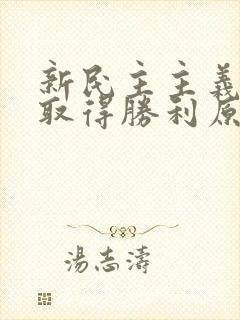 新民主主義
取得勝利原
湯志濤